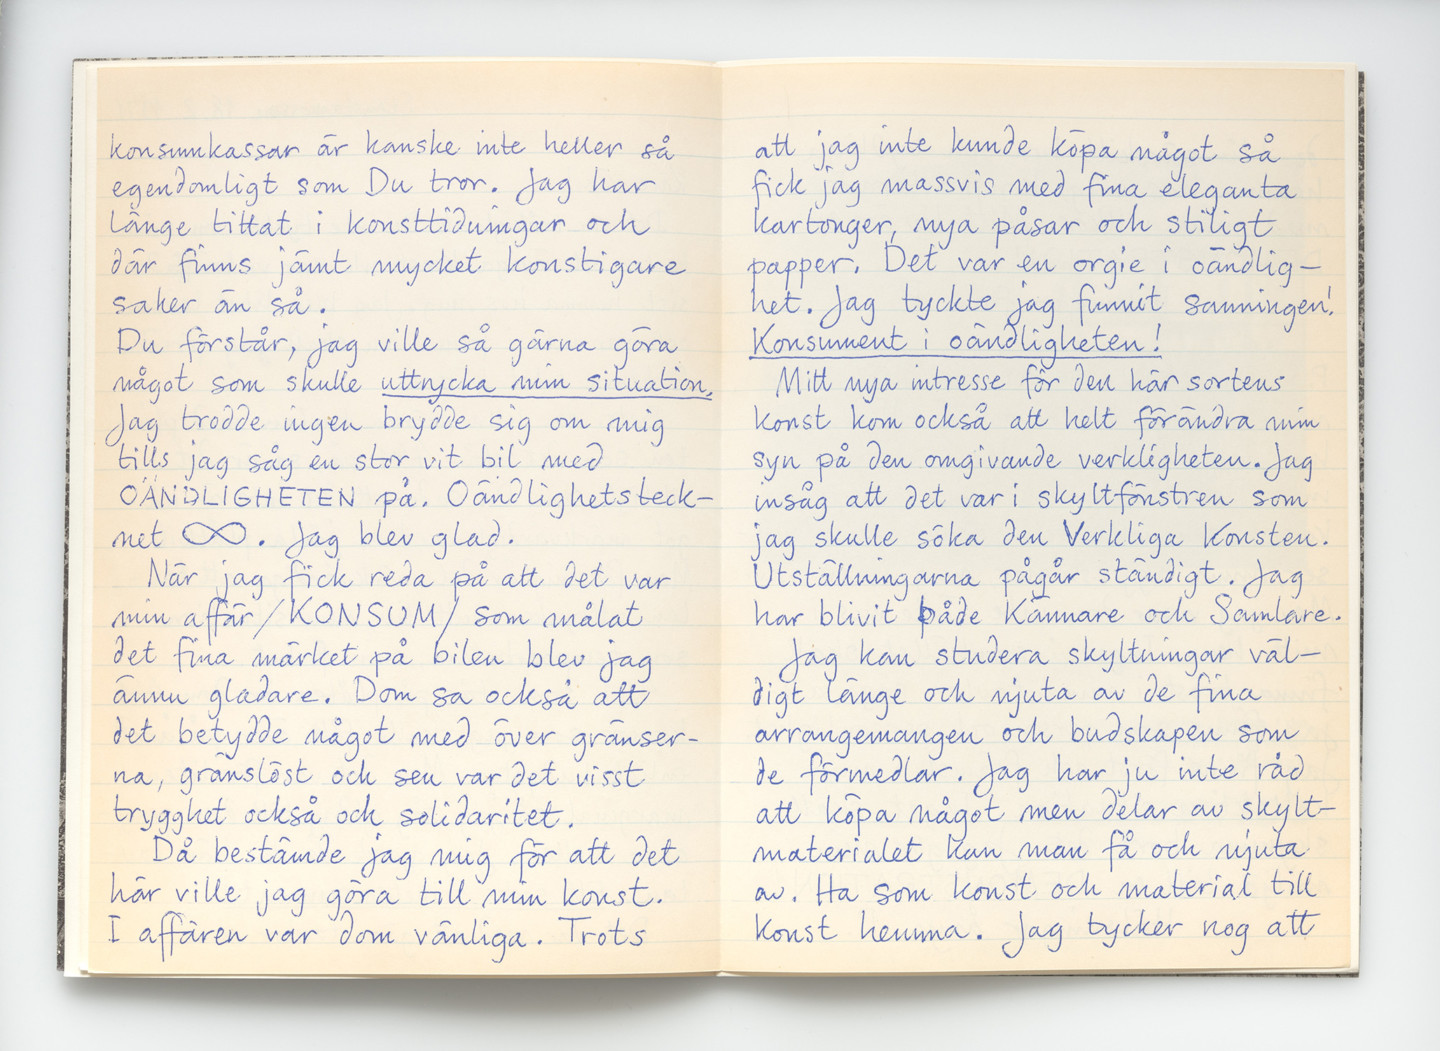 konsumkassar är kanske inte heller så
egendomligt som Du tror. Jag har
länge tittat i konsttidningar och
där finns jämt mycket konstigare
saker än så.
Du förstår, jag ville så gärna göra
något som skulle uttrycka min situation.
Jag trodde ingen brydde sig om mig
tills jag såg en stor vit bil med
OÄNDLIGHETEN på. Oändlighetsteck-
net ∞. Jag blev glad.
När jag fick reda på att det var
min affär/KONSUM/ som målat
det fina märket på bilen blev jag
ännu gladare. Dom sa också att
det betydde något med över gränser-
na, gränslöst och sen var det visst
trygghet också och solidaritet.
Då bestämde jag mig för att det
här ville jag göra till min konst.
I affären var dom vänliga. Trots
att jag inte kunde köpa något så
fick jag massvis med fina eleganta
kartonger, nya påsar och stiligt
papper. Det var en orgie i oändlig-
het. Jag tyckte jag funnit sanningen!
Konsument i oändligheten!
Mitt nya intresse för den här sortens
konst kom också att helt förändra min
syn på den omgivande verkligheten. Jag
insåg att det var i skyltfönstren som
jag skulle söka den Verkliga Konsten.
Utställningarna pågår ständigt. Jag
har blivit både Kännare och Samlare.
Jag kan studera skyltningar väl-
digt länge och njuta av de fina
arrangemangen och budskapen som
de förmedlar. Jag har ju inte råd
att köpa något men delar av skylt-
materialet kan man få och njuta
av. Ha som konst och material till
konst hemma. Jag tycker nog att